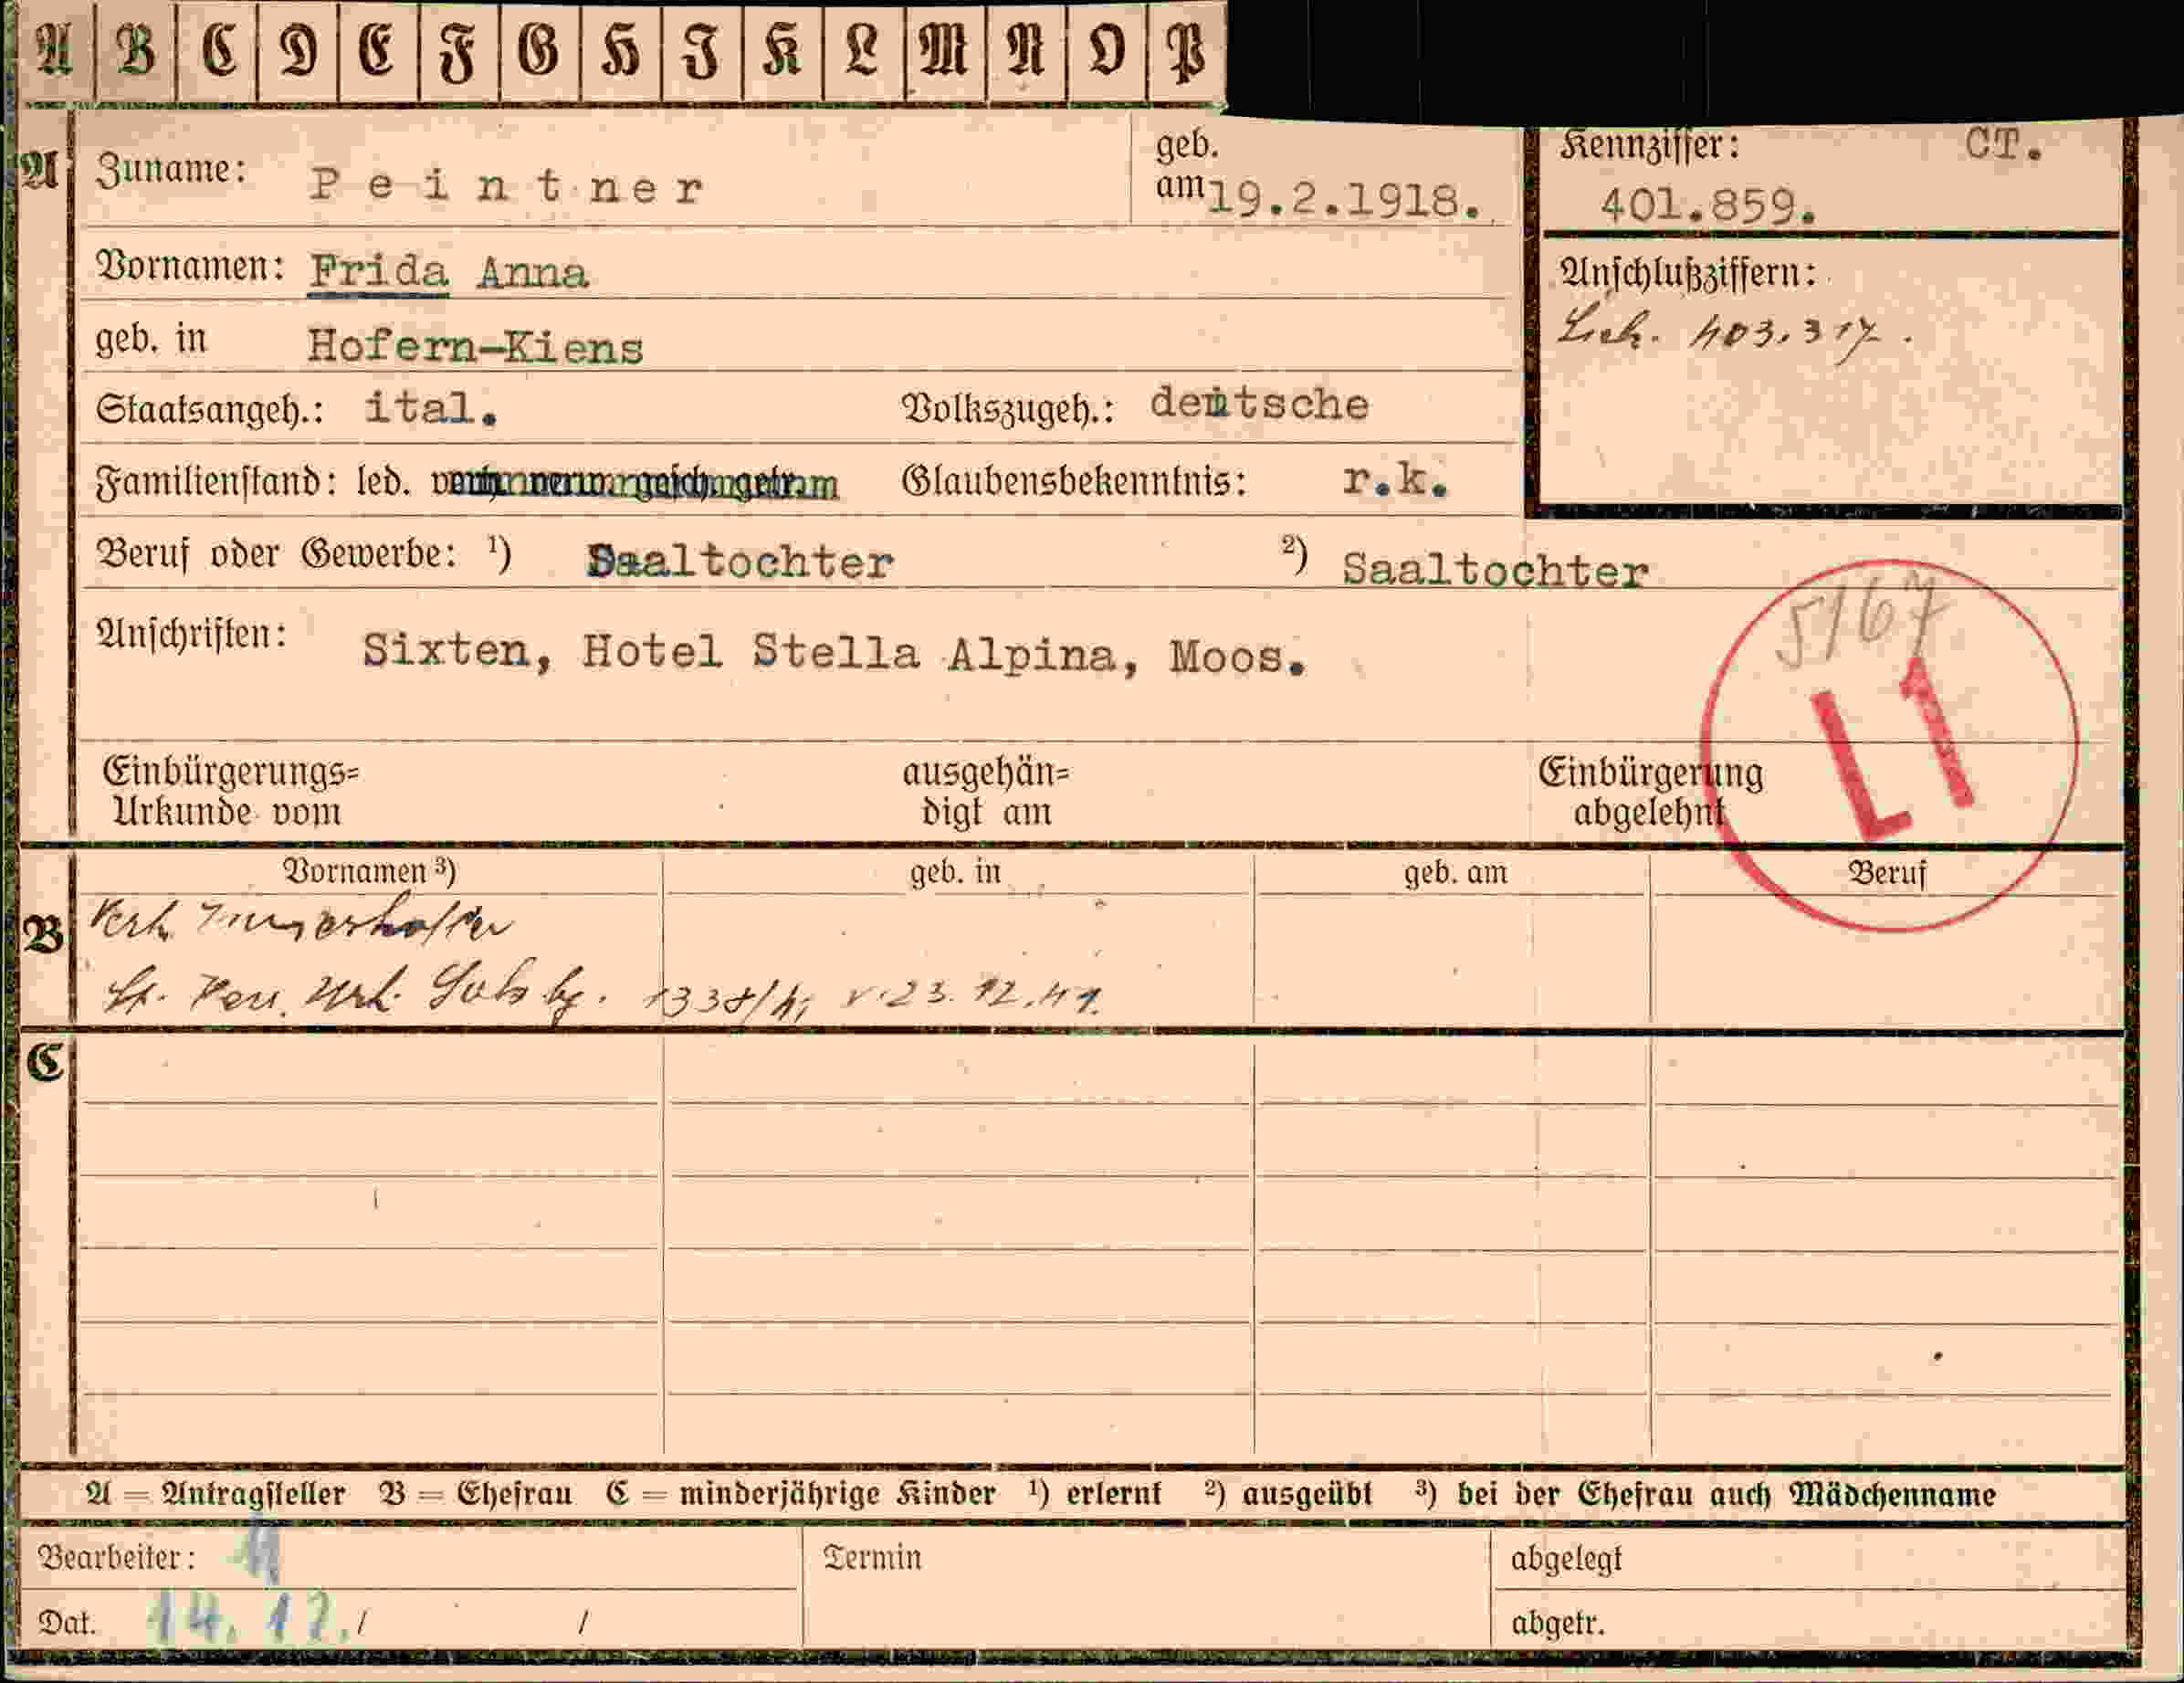 A B C D E F G H I K L M N O P
A Zuname: Peintner geb. am 19.2.1918. Kennziffer: CT. 401.859.
Vornamen: Frida Anna
Anschlußziffern:
403.317.
geb. in Hofern-Kiens
Staatsangeh.: ital. Volkszugeh.: deutsche
Familienstand: led. Glaubensbekenntnis: r.k.
Beruf oder Gewerbe: 1) Saaltochter 2) Saaltochter
5167
Anschriften: Sixten, Hotel Stella Alpina, Moos.
L1
Einbürgerungs= ausgehän= Einbürgerung
Urkunde vom digt am abgelehnt
Vornamen 3) geb. in geb. am Beruf
B Verh.
Urk. 1338/ v. 23.12.41.
C
A = Antragsteller B = Ehefrau C = minderjährige Kinder 1) erlernt 2) ausgeübt 3) bei der Ehefrau auch Mädchenname
Bearbeiter: Termin abgelegt
Dat. 14.12./ / abgetr.